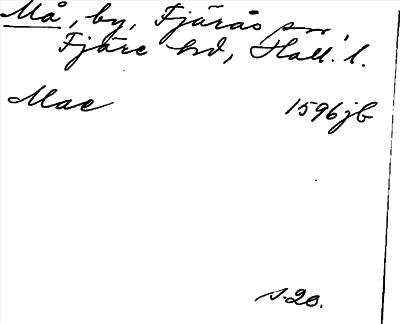 Må, by, Fjärås sn,
Fjäre hd, Hall. l.
Mae 1596 jb
s. 20.